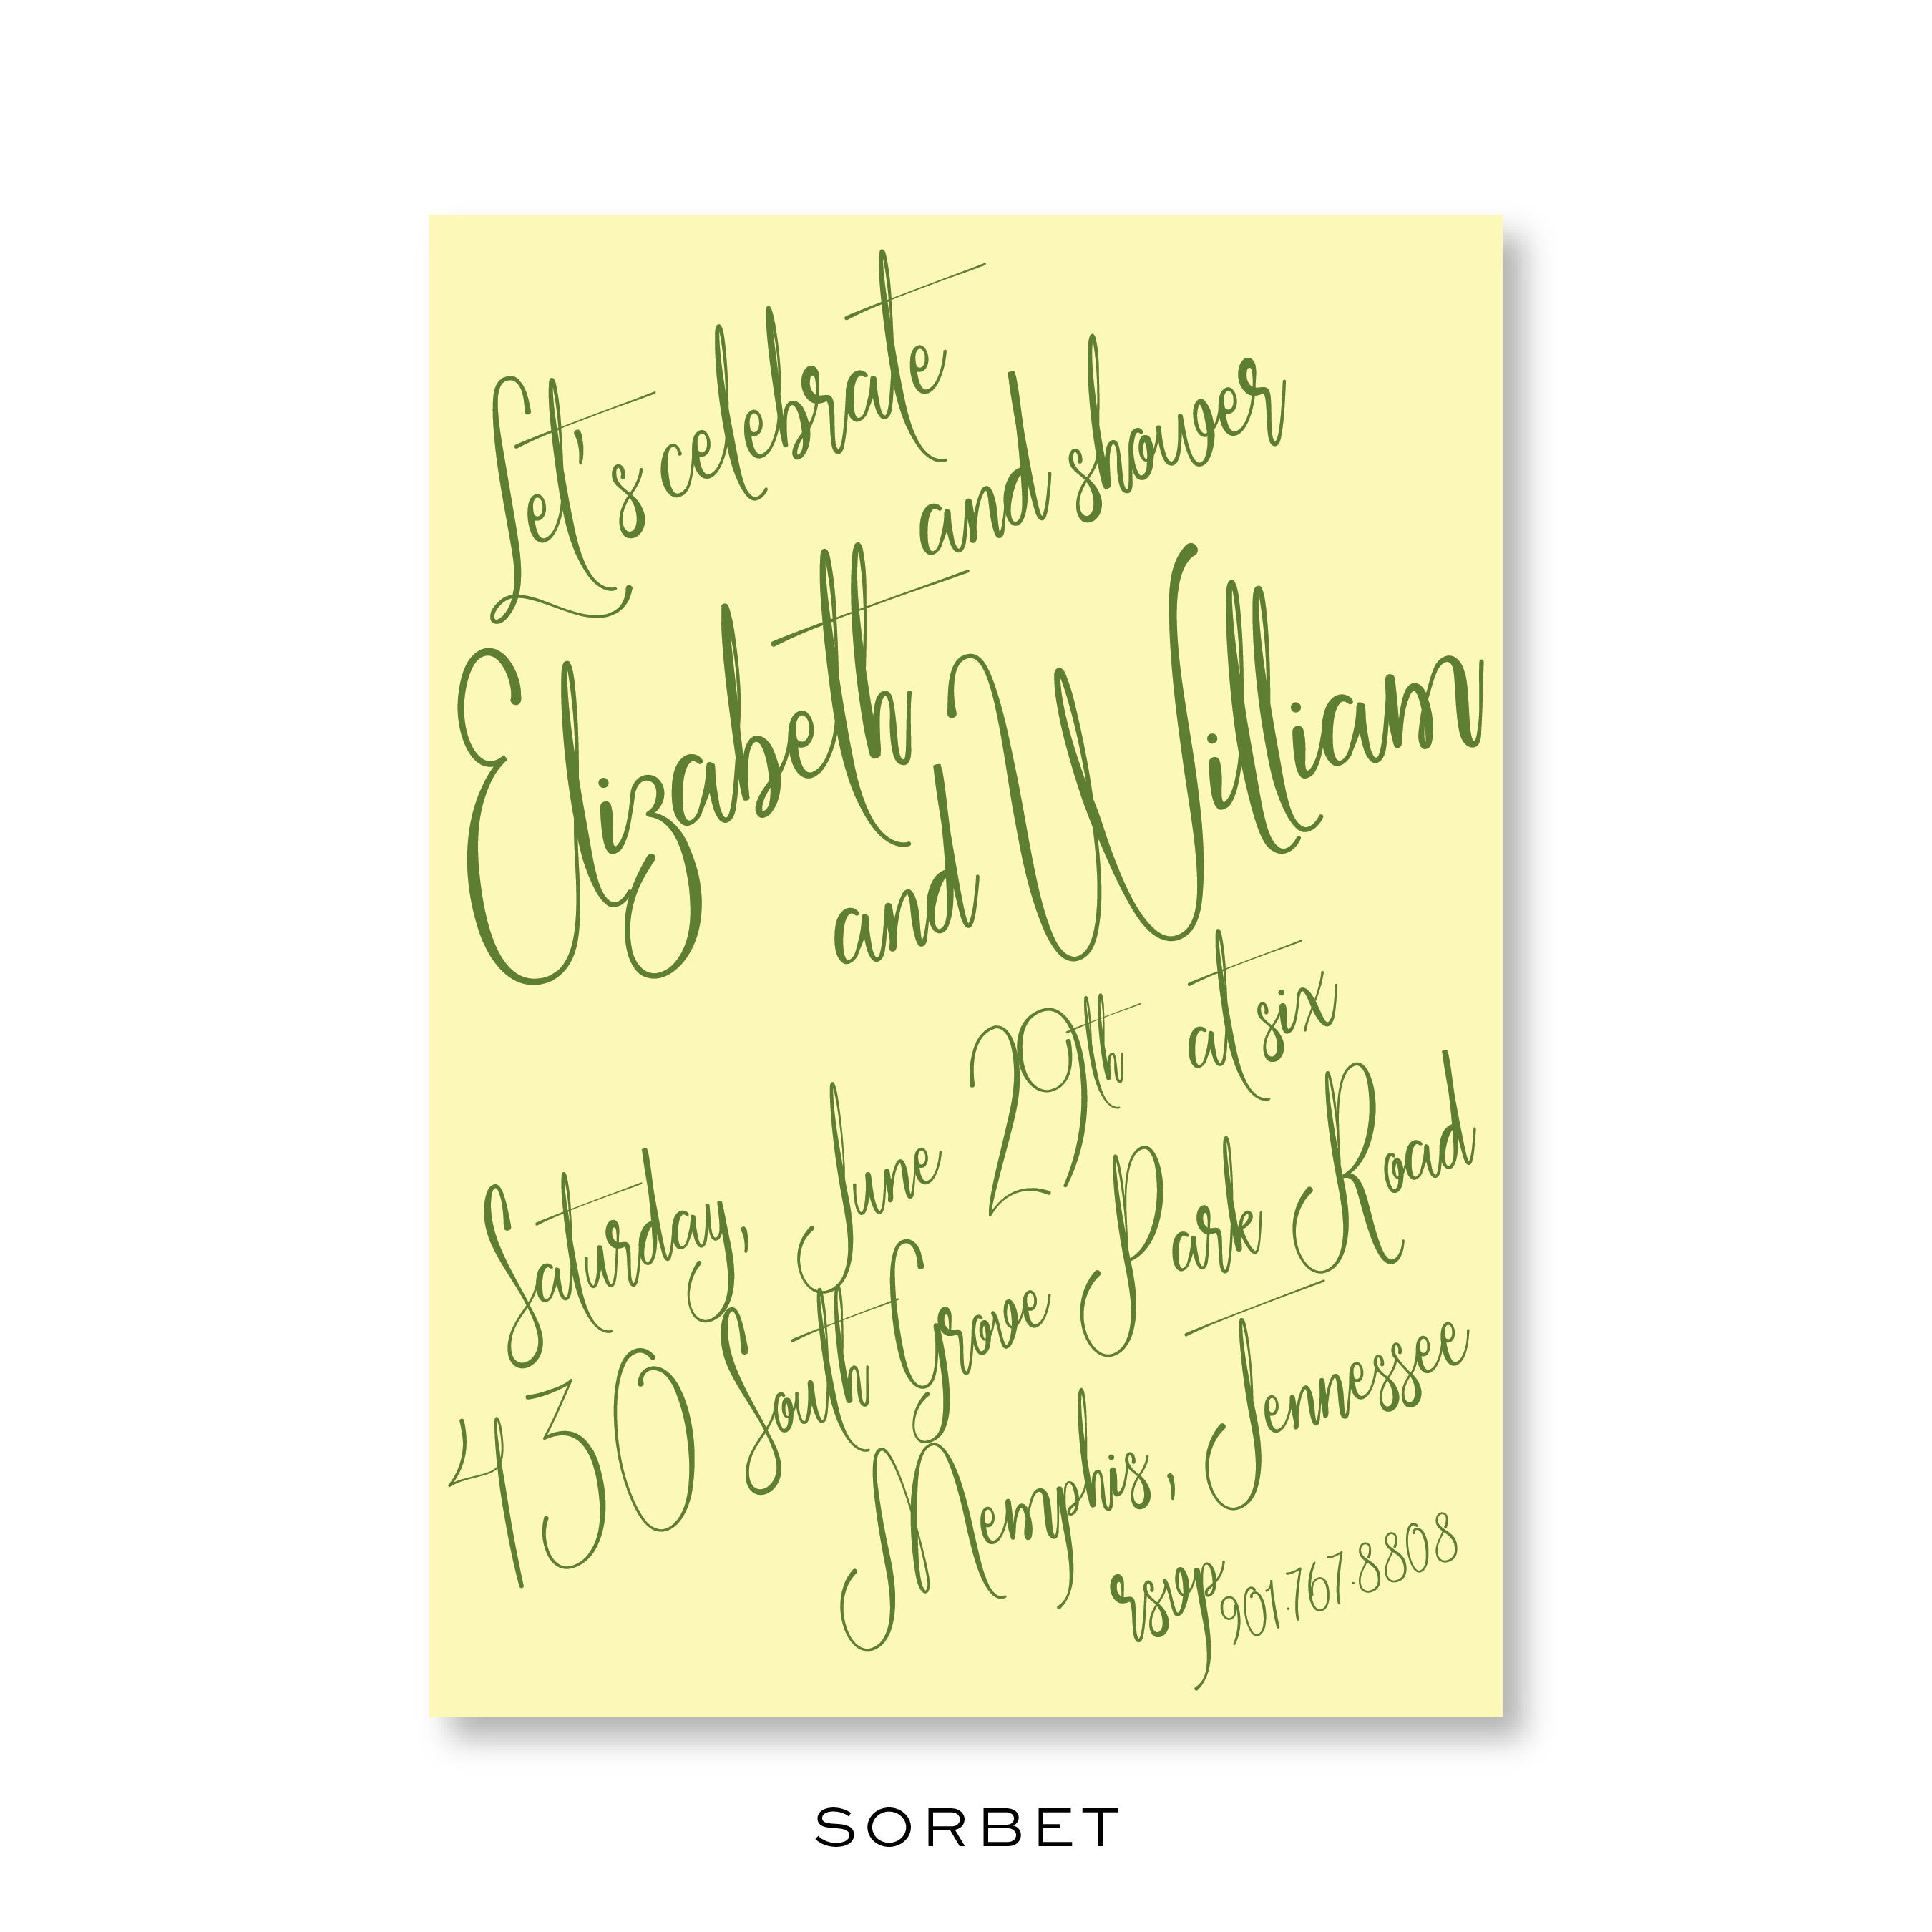 Let's celebrate
and shower
Elizabeth
and William
Saturday, June 29th at six
430 South Grove Park Road
Memphis, Tennessee
rsvp 901.767.8808
SORBET